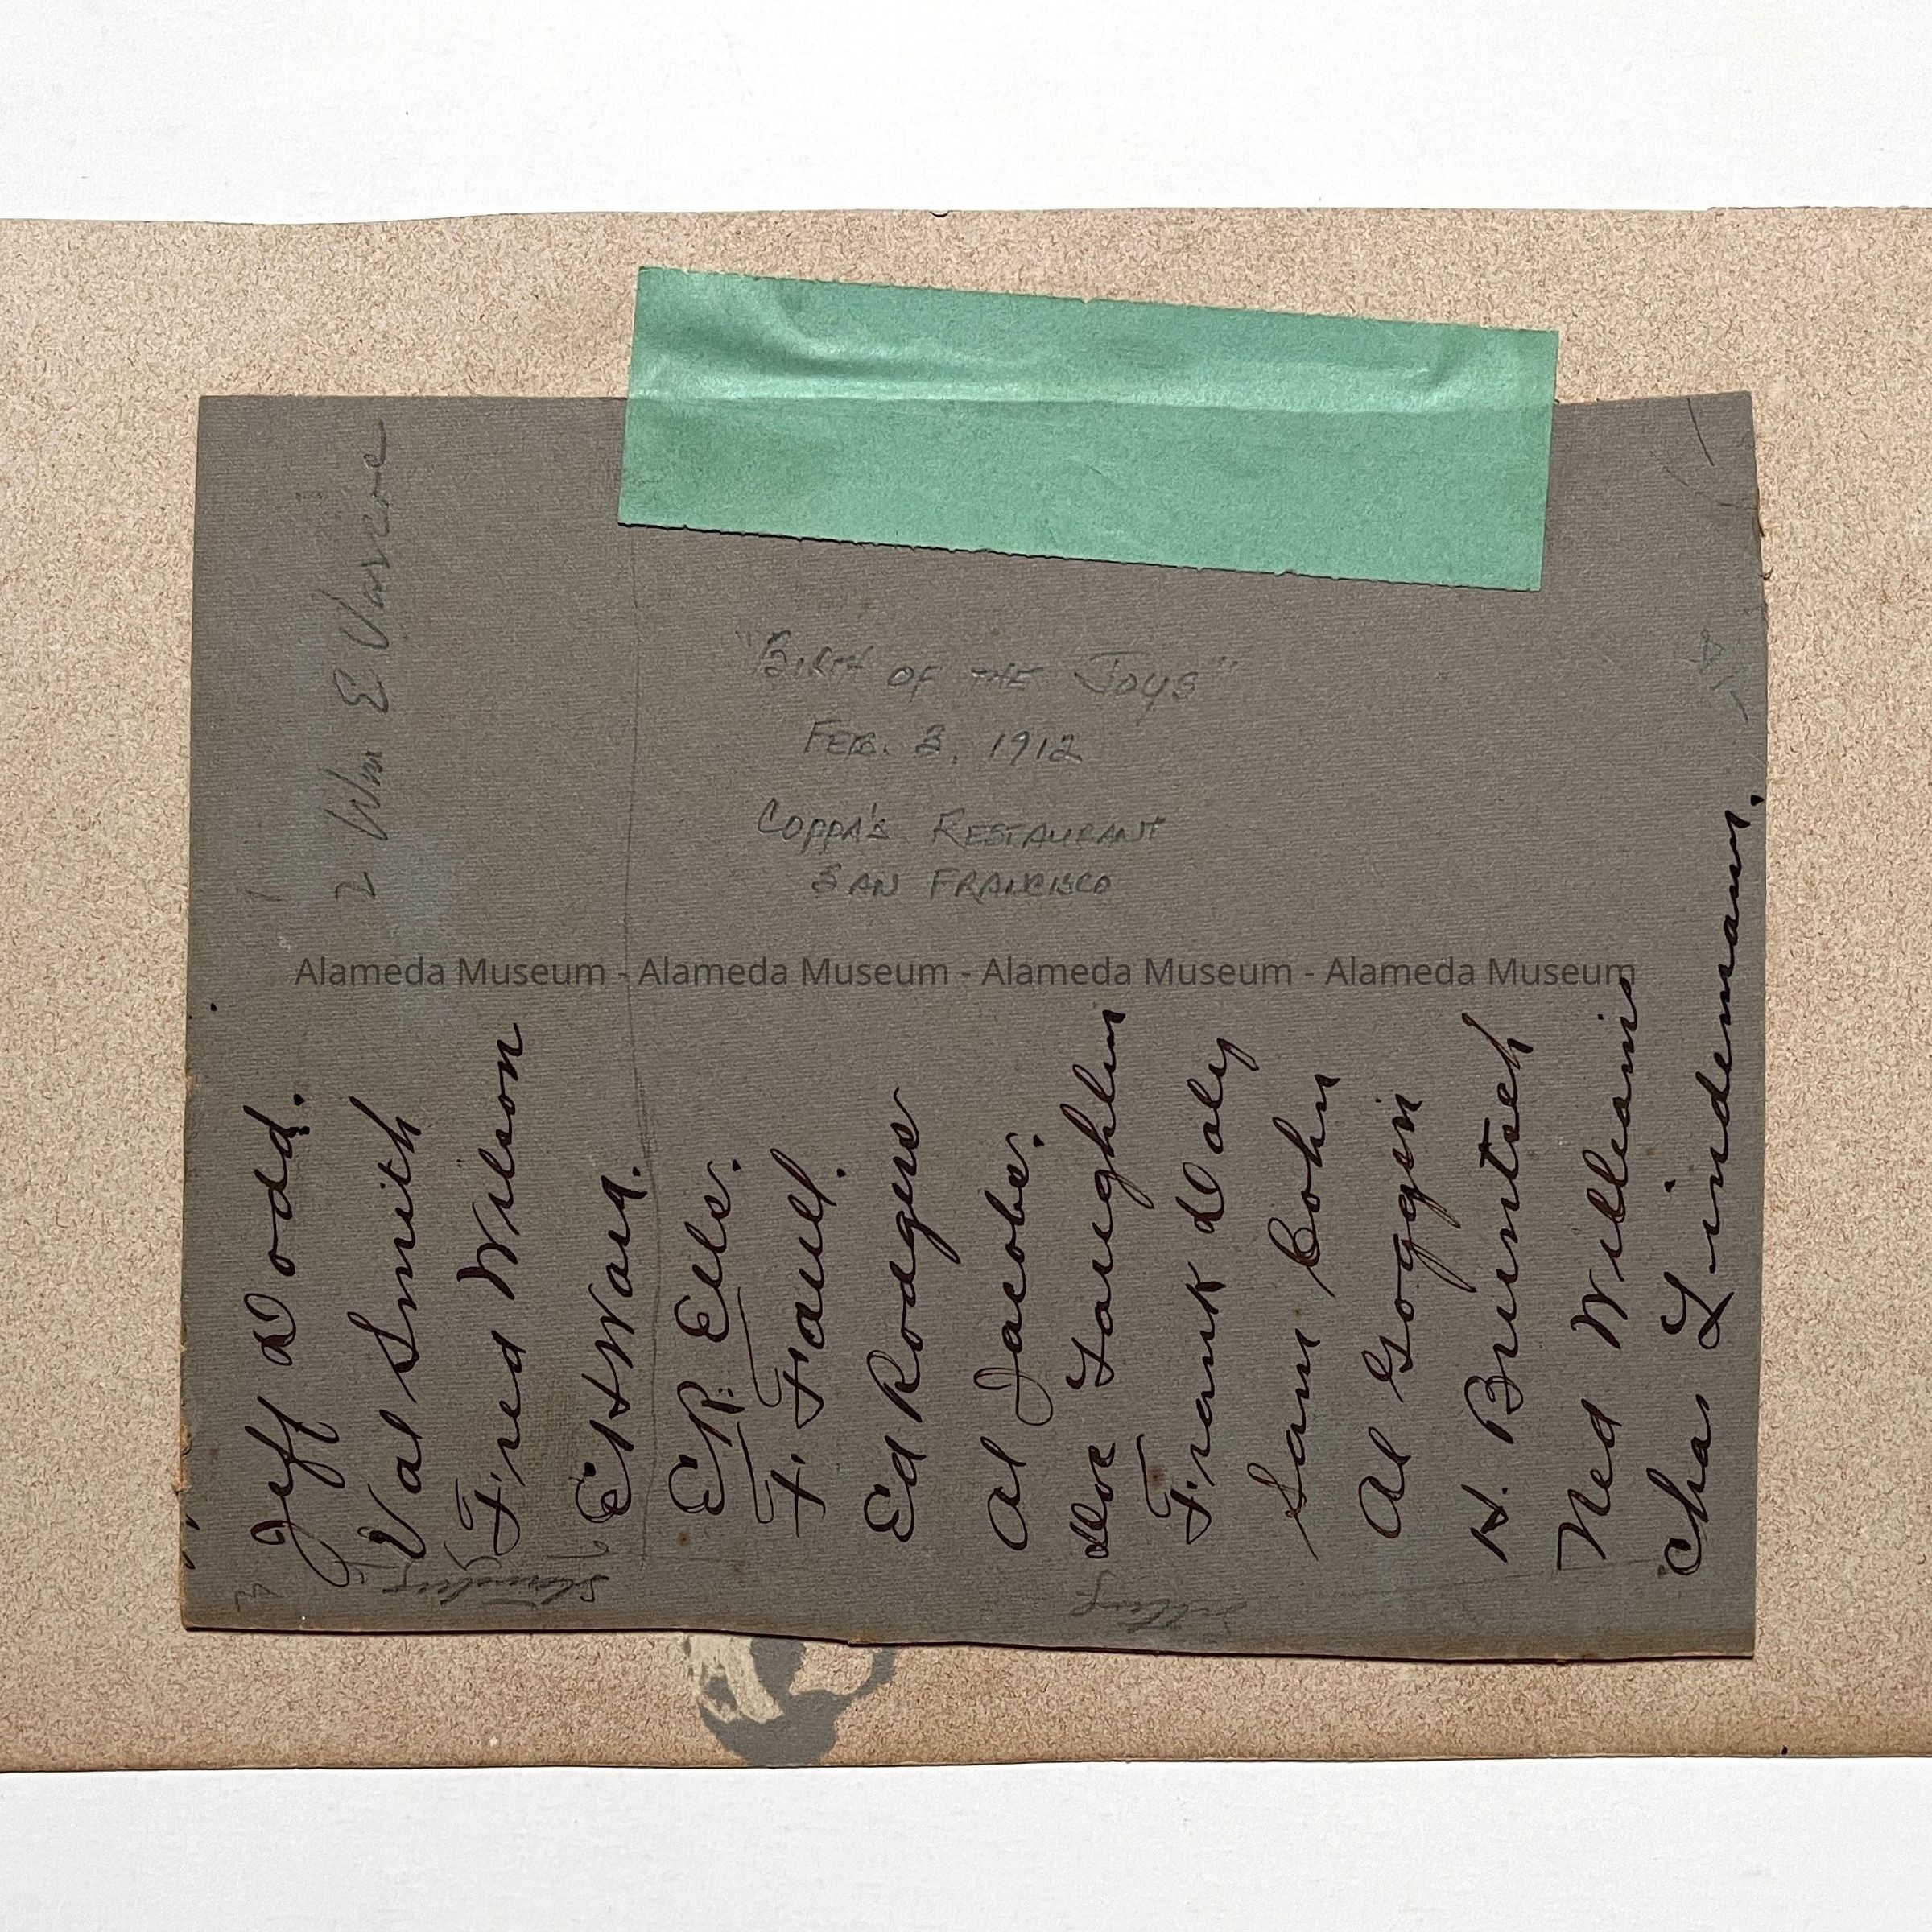 "BIRTH OF THE JOYS"
FEB. 3, 1912
COPPA'S RESTAURANT
SAN FRANCISCO
Alameda Museum - Alameda Museum - Alameda Museum - Alameda Museum
Jeff Dodd.
2 Wm E Varcoe
Val Smith
Fred Wilson
E H Ward.
Standing
E.R. Ells.
F. Faull.
Ed Rodgers
Al Jacobs.
Doc Laughlin
Frank Daly
Sam Cohn
Al Goggin
H. Bruntsch
Ned Williams
Chas Lindemann.
Sitting